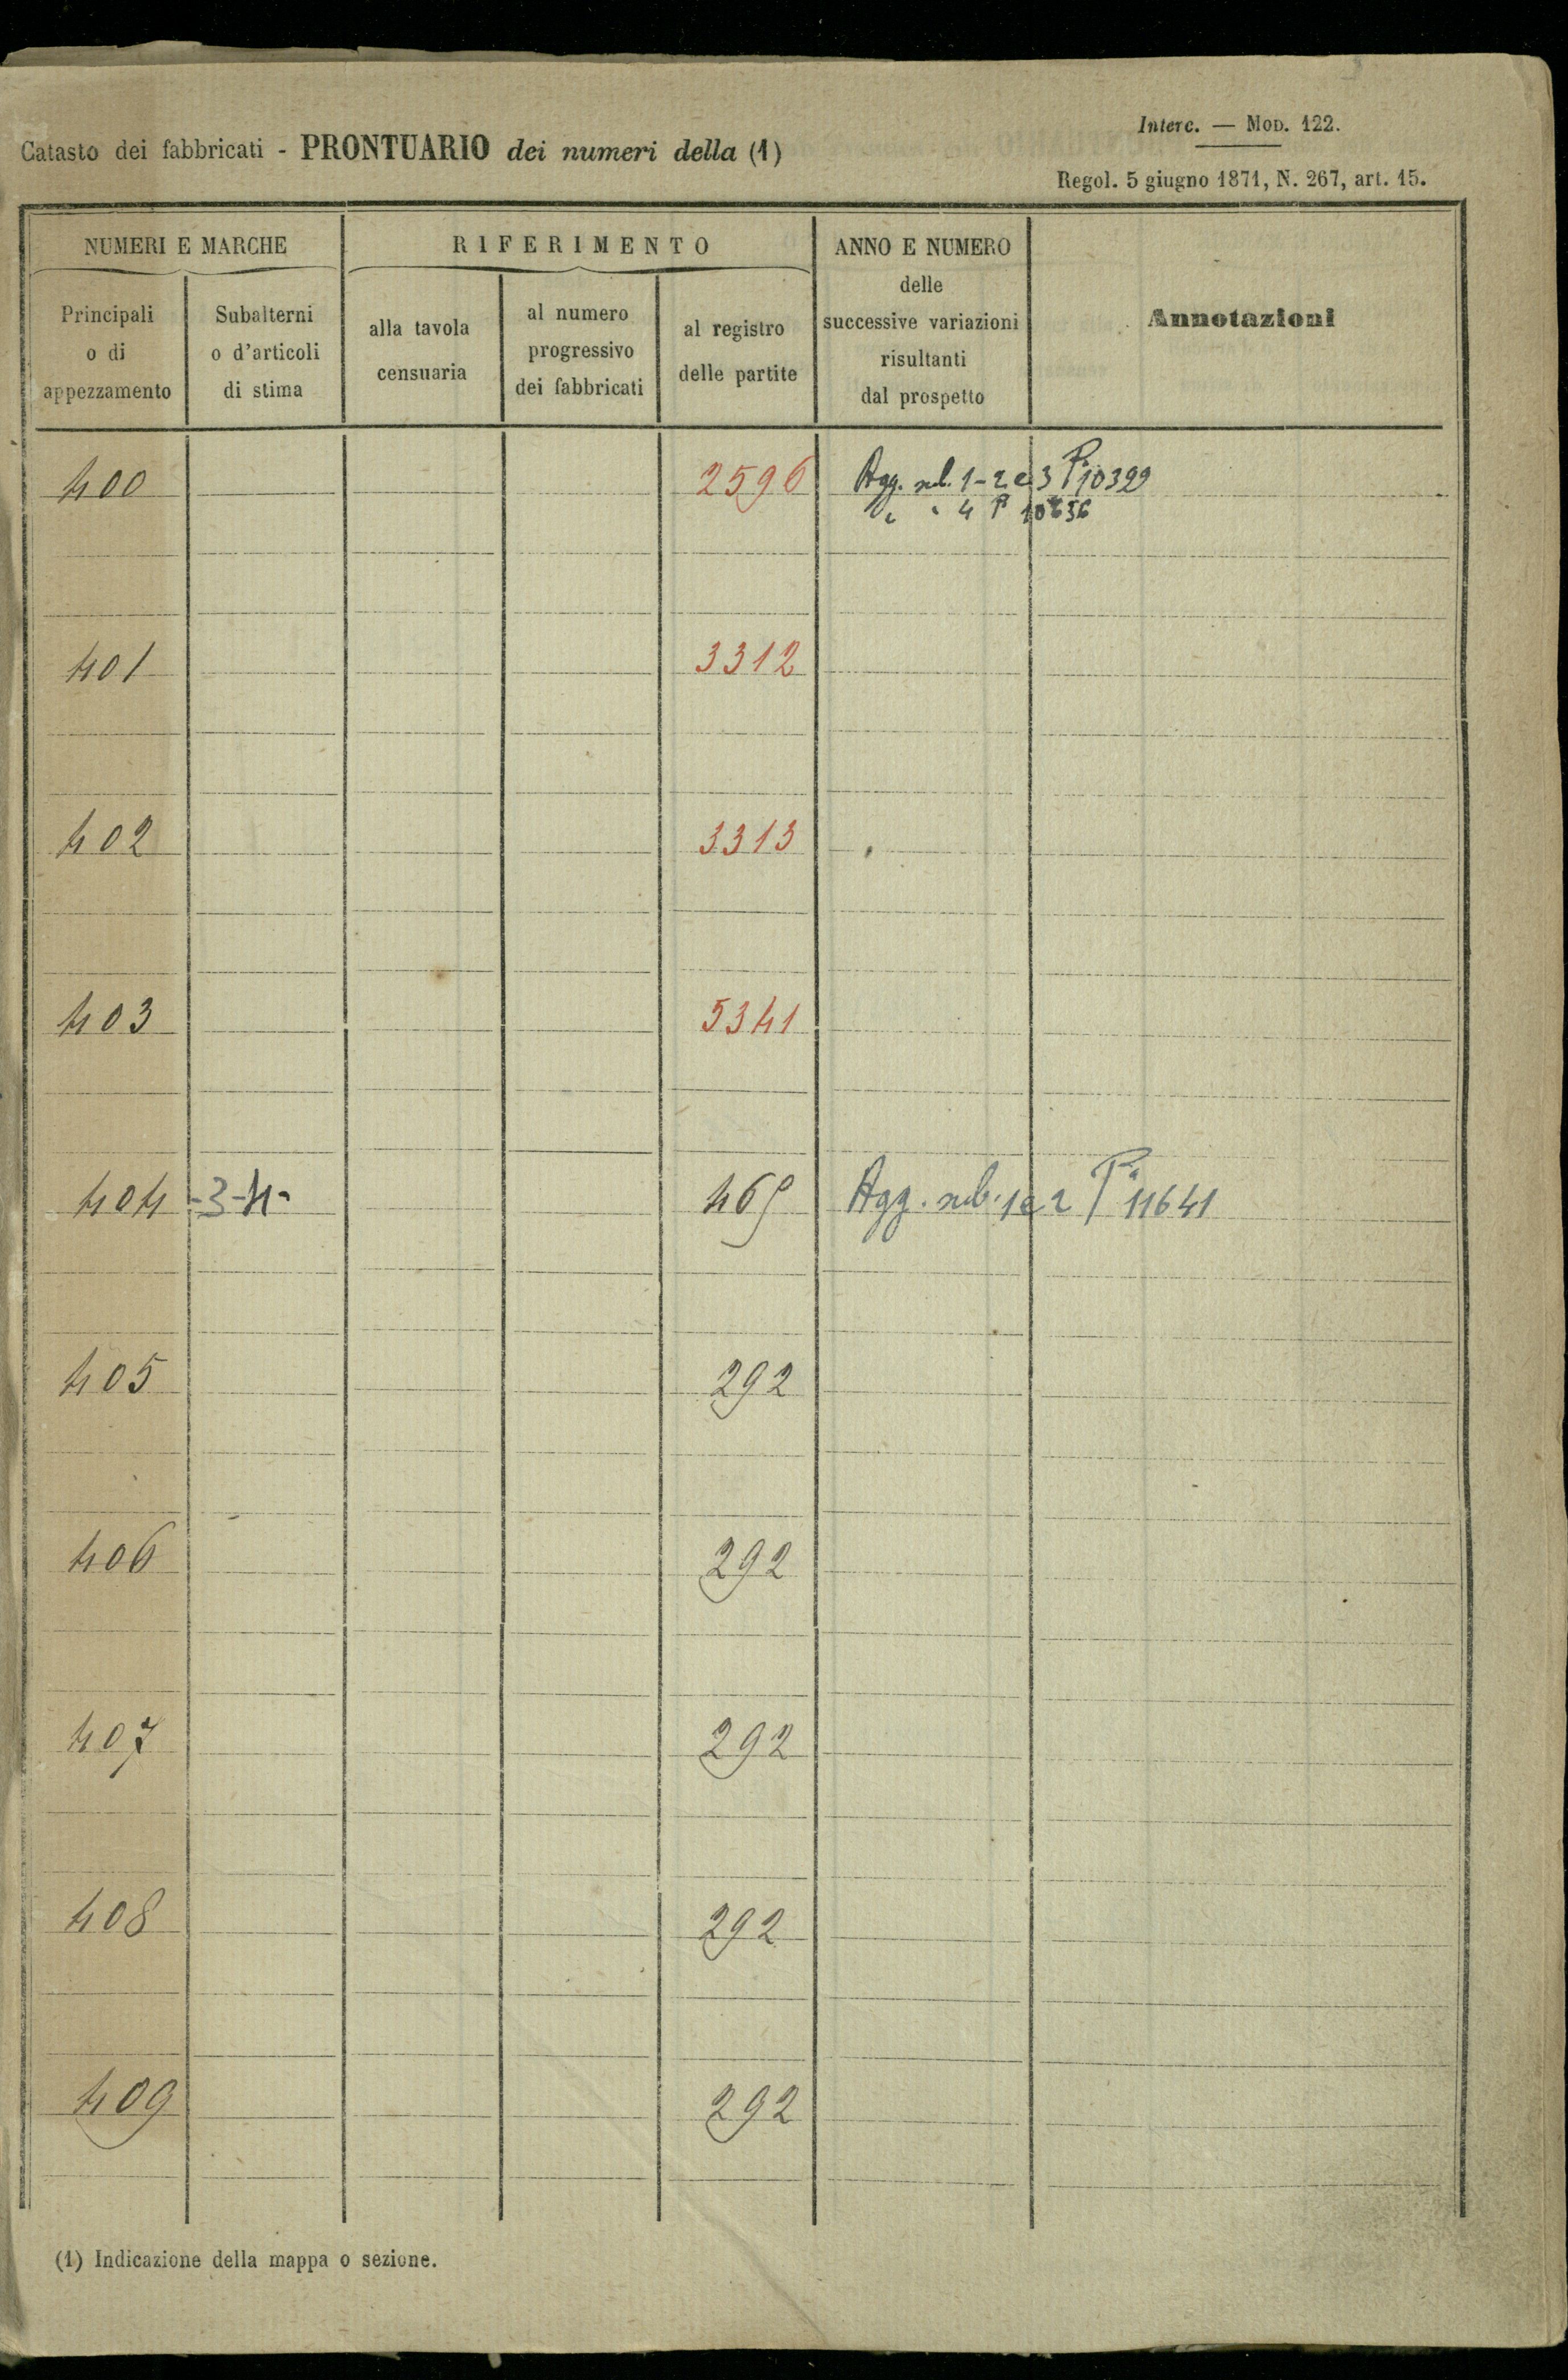 Interc. — MOD. 122.
Catasto dei fabbricati - PRONTUARIO dei numeri della (1)
Regol. 5 giugno 1871, N. 267, art. 15.
NUMERI E MARCHE
Principali
o di
appezzamento
Subalterni
o d'articoli
di stima
RIFERIMENTO
alla tavola
censuaria
al numero
progressivo
dei fabbricati
al registro
delle partite
ANNO E NUMERO
delle
successive variazioni
risultanti
dal prospetto
Annotazioni
400 2596 Agg. sub. 1-2 e 3 Pª 10399
" " 4 Pª
401 3312
402 3313
403 5341
404 -3-4- 469 Agg. sub. 1 e 2 Pª 11641
405 292
406 292
407 292
408 292
409 292
(1) Indicazione della mappa o sezione.